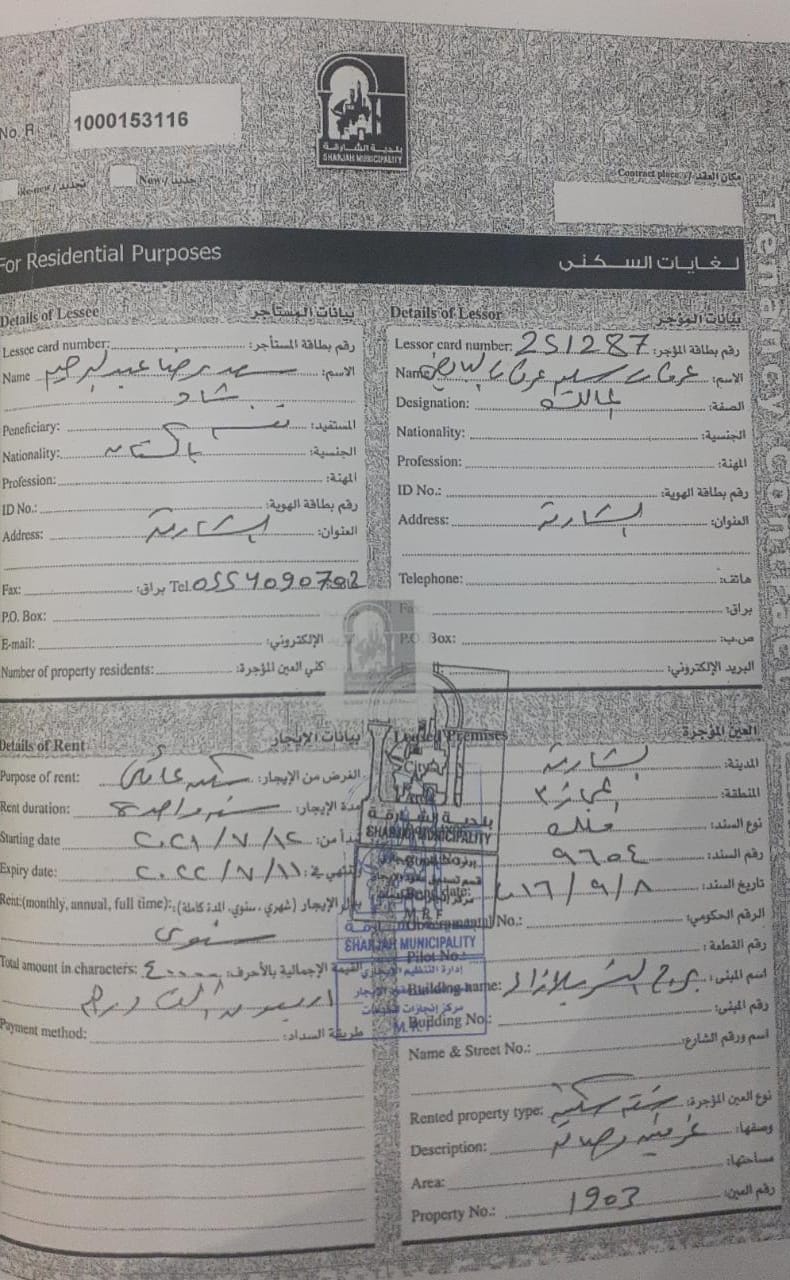 No. R
1000153116
بلدية الشارقة
SHARJAH MUNICIPALITY
Renew / تجديد
New / جديد
Contract place / مكان العقد
For Residential Purposes
لغايات السكنى
Details of Lessee
بيانات المستأجر
Lessee card number: رقم بطاقة المستأجر:
Name الاسم:
Peneficiary: المستفيد:
Nationality: باكستان الجنسية:
Profession: المهنة:
ID No.: رقم بطاقة الهوية:
Address: الشارقة العنوان:
Fax: براق: Tel. 0554090782
P.O. Box:
E-mail: الإلكتروني:
Number of property residents: كني العين المؤجرة:
Details of Lessor
بيانات المؤجر
Lessor card number: 251287 رقم بطاقة المؤجر:
Name الاسم:
Designation: المالك الصفة:
Nationality: الجنسية:
Profession: المهنة:
ID No.: رقم بطاقة الهوية:
Address: الشارقة العنوان:
Telephone: هاتف:
Fax براق:
P.O. Box: ص.ب:
البريد الإلكتروني:
Details of Rent
بيانات الإيجار
Purpose of rent: سكن عائلي الغرض من الإيجار:
Rent duration: سنة واحدة مدة الإيجار:
Starting date ٢٠٢١/٧/١٢ يبدأ من:
Expiry date: ٢٠٢٢/٧/١١ ينتهي في:
Rent:(monthly, annual, full time): بدل الإيجار (شهري، سنوي، المدة كاملة):
سنوي
Total amount in characters: ٤٠٠٠٠ القيمة الإجمالية بالأحرف:
اربعون الف درهم
Payment method: طريقة السداد:
Leased Premises
العين المؤجرة
City الشارقة المدينة:
المجاز ٣ المنطقة:
نوع السند:
٩٦٥٤ رقم السند:
٢٠١٦/٩/٨ تاريخ السند:
الرقم الحكومي:
Pilot No.: رقم القطعة:
Building name: اسم المبنى:
Building No.: رقم المبنى:
Name & Street No.: اسم ورقم الشارع:
Rented property type: شقة سكنية نوع العين المؤجرة:
Description: غرفتين وصالة وصفها:
Area: مساحتها:
Property No.: 1903 رقم العين:
بلدية الشارقة
SHARJAH MUNICIPALITY
SHARJAH MUNICIPALITY